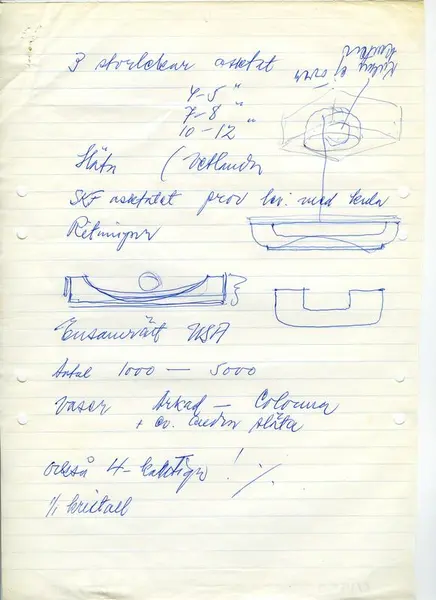 3 storlekar askfat
4-5 "
7-8 "
10-12 "
Släta (Vetlanda
SKF askfatat prov med kula
Ritningar
Ensamrätt USA
Antal 1000 — 5000
vaser Arkad — Colonna
+ ev. andra släta
också 4-kantiga ! ./.
1/1 kristall